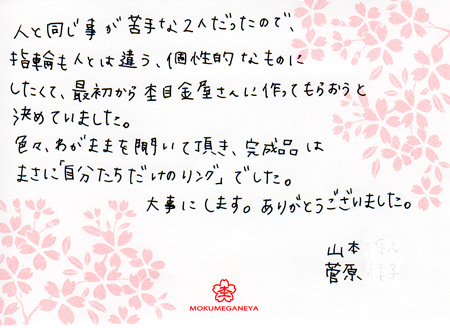 人と同じ事が苦手な2人だったので、
指輪も人とは違う、個性的なものに
したくて、最初から杢目金屋さんに作ってもらおうと
決めていました。
色々、わがままを聞いて頂き、完成品は
まさに「自分たちだけのリング」でした。
大事にします。ありがとうございました。
山本
菅原
MOKUMEGANEYA